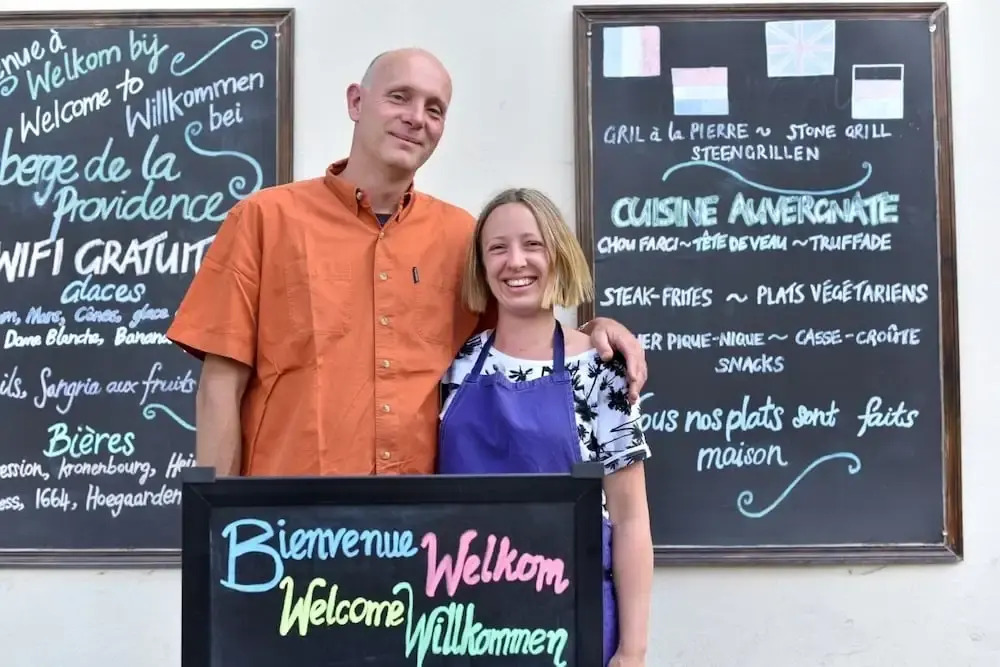 nue à
Welkom bij
Welcome to
Willkommen
bei
berge de la
Providence
WIFI GRATUIT
glaces
Mars, Cônes, glace
Dame Blanche, Banan
Sangria aux fruits
Bières
ession, Kronenbourg, Hei
ess, 1664, Hoegaarden
GRIL à la PIERRE ~ STONE GRILL
STEENGRILLEN
CUISINE AUVERGNATE
CHOU FARCI ~ TÊTE DE VEAU ~ TRUFFADE
STEAK-FRITES ~ PLATS VÉGÉTARIENS
IER PIQUE-NIQUE ~ CASSE-CROÛTE
SNACKS
ous nos plats sont faits
maison
Bienvenue Welkom
Welcome Willkommen